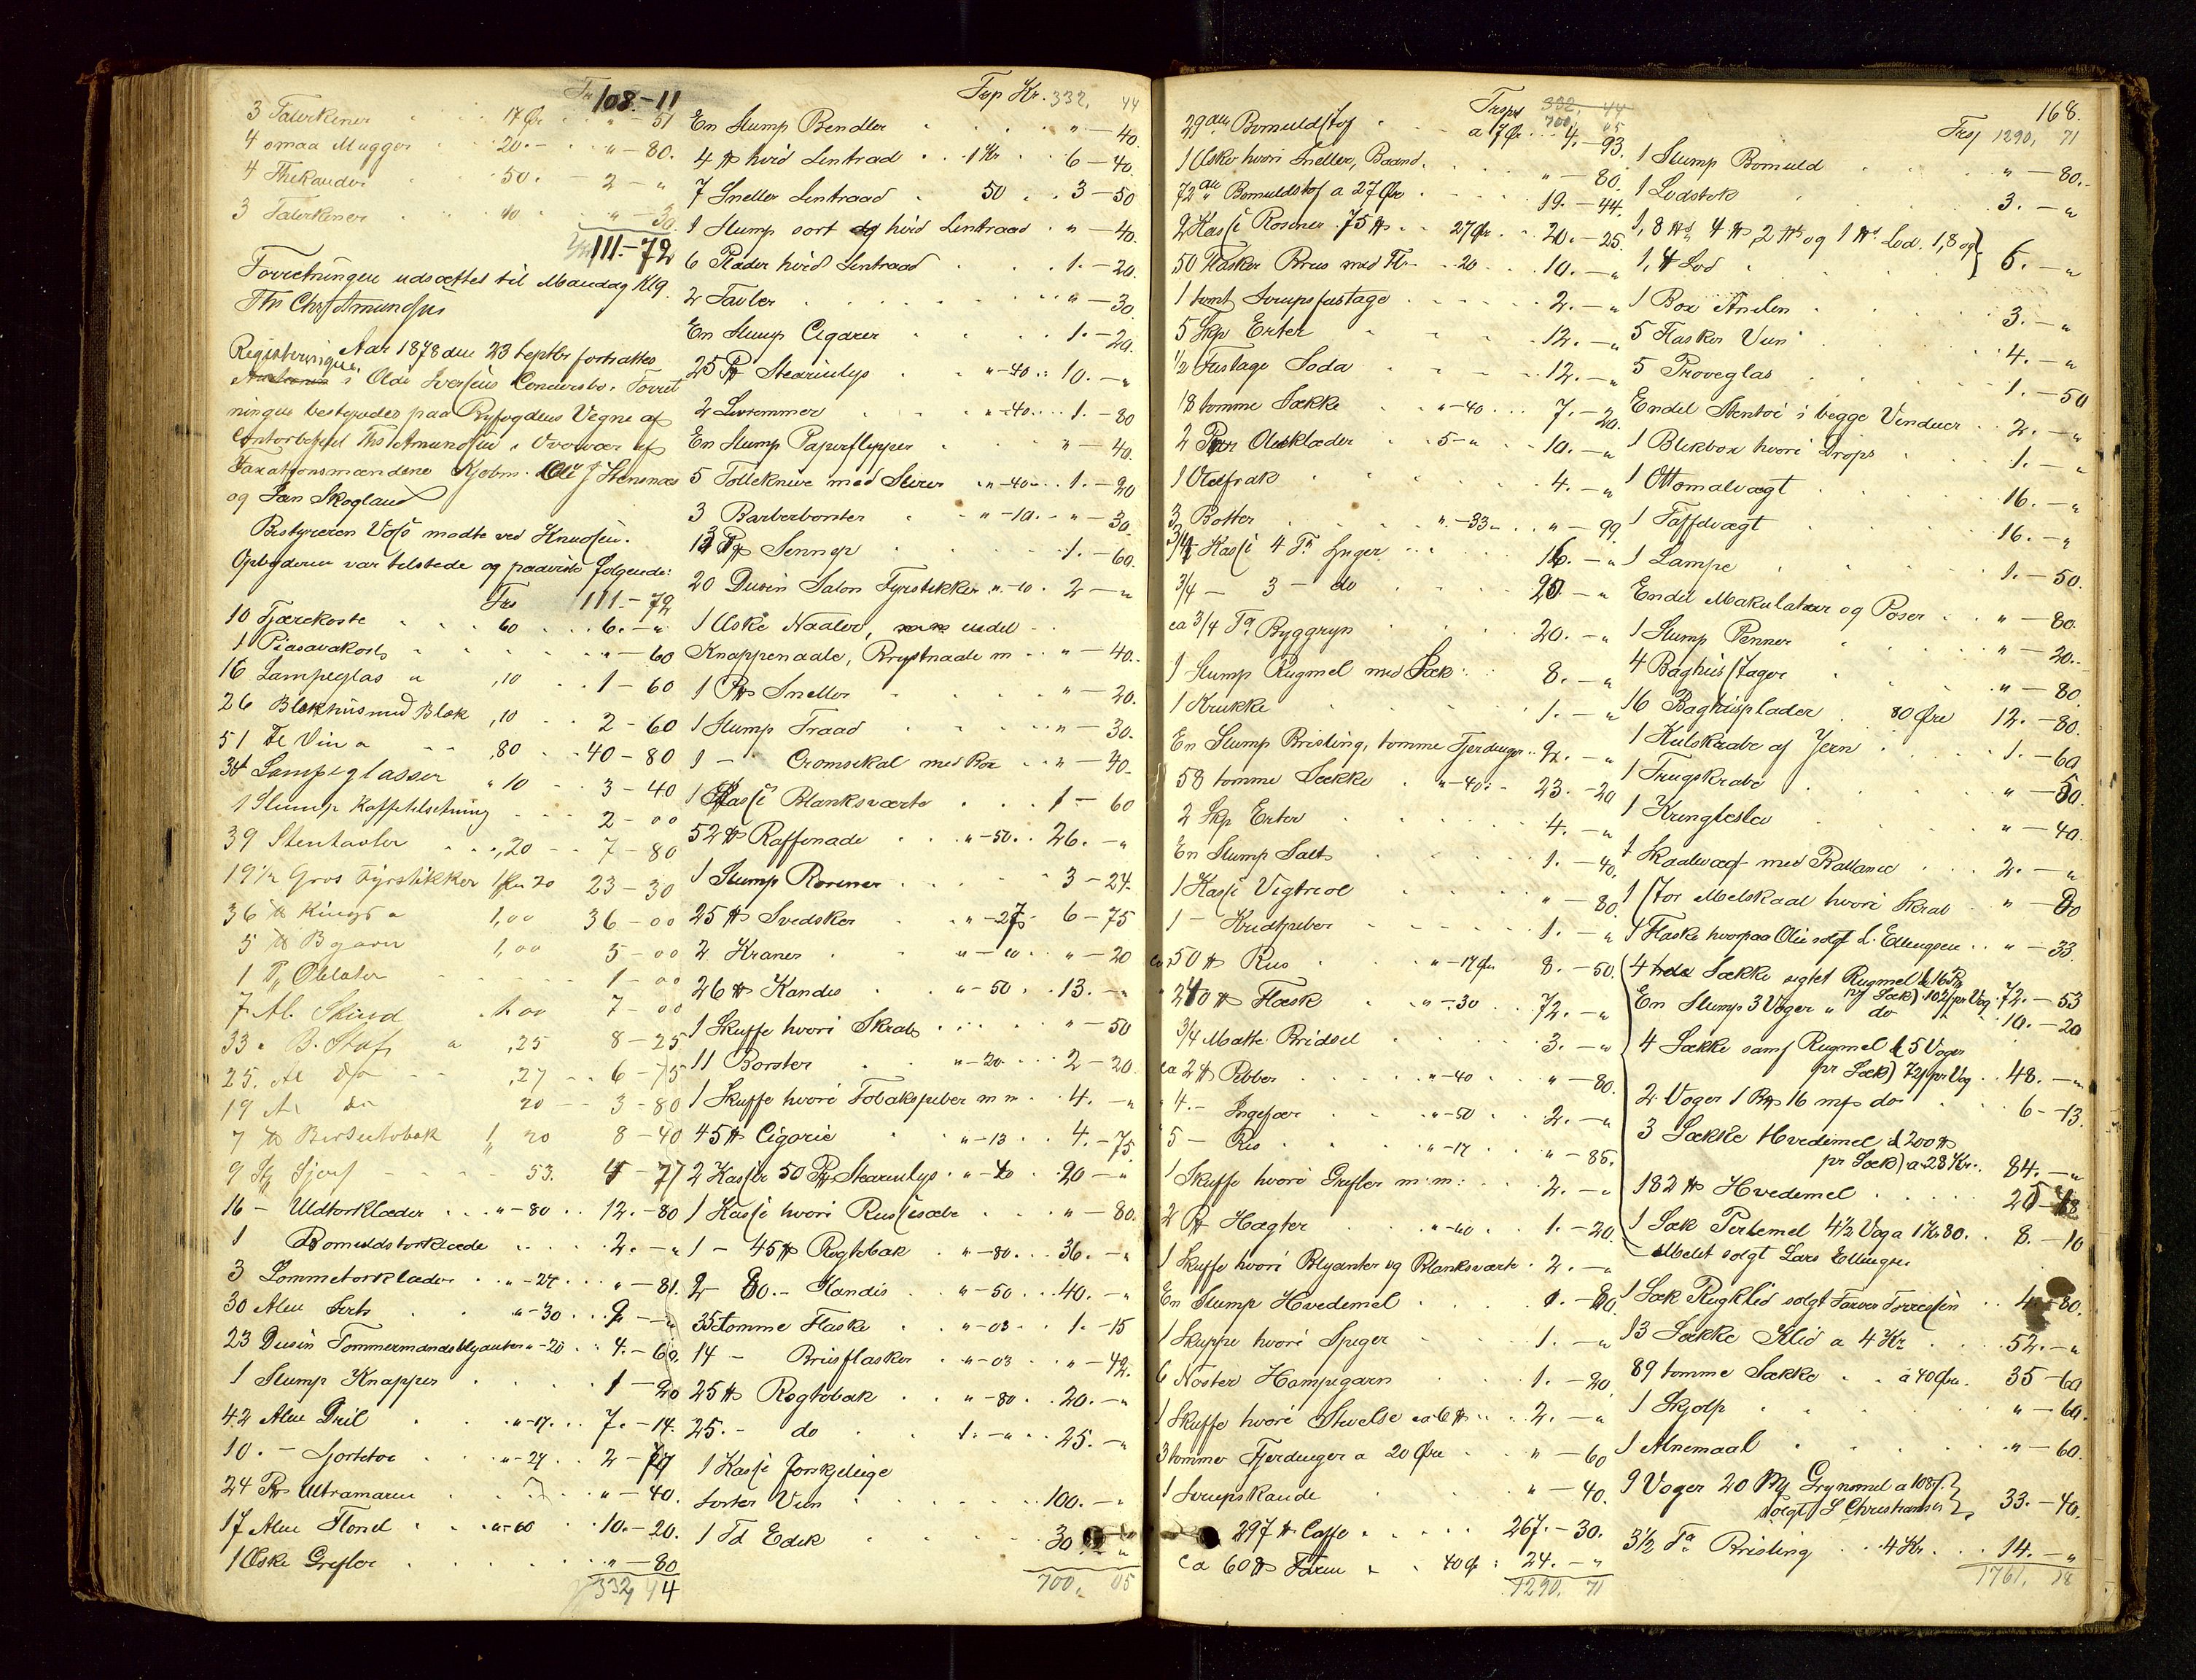 Tr 108.-11
3 Talerkener 17 Øre " - 51
4 smaa Mugger 20.- " - 80.
4 Thekander 50. - 2 - "
3 Talerkener 10 " - 30.
111.-72
Forretningen udsættes til Mandag Klg.
Ths Chr Amundsen
Aar 1878 den 23 Septbr fortsattes
Registeringen i Olde Iversens Concursbo. Forret
ningen bestyredes paa Byfogdens Vegne af
Contorbetjent Ths Amundsen i Overvær af
Taxationsmændene Kjøbm. Ole J Stensnæs
og Jan Skogland
Bestyreren Voss mødte ved Knudsen.
Opbyderen var tilstede og paaviste følgende:
Trs 111.-72
10 Tjærekoste 60 6.- "
1 Piasavakost " - 60
16 Lampeglas a ,10 1 - 60
26 Blækhus med Blæk ,10 2 - 60
51 Fl Vin a ,80 40 - 80
34 Lampeglasser " 10 3 - 40
1 Slump Kaffetilsetning 2 - 00
39 Stentavler ,20 7 - 80
19½ Gros Fyrstikker 1 Kr 20 23 - 30
36 ℔ Kings a 1,00 36 - 00
5 ℔ Bgarn 1,00 5 - 00
1 P. Oblater 1 - 00
7 Al. Skind 1.00 7 - 00
33 " B. Stof a ,25 8 - 25
25. Al do ,27 6 - 75
19 Al do 20 3 - 80
7 ℔ Bersentobak 1, 20 8 - 40
9 53. 4 - 77
16 - Uldtørklæder " - 80 12. - 80
1 Bomuldstørklæde 2. - "
3 Lommetørklæder " - 27 " - 81.
30 Alen Sirts " - 30 9 - "
23 Dusin Tømmermandsblyanter " - 20 4. - 60.
1 Slump Knapper 1 - 20
42 Alen Dril " - 17 7. - 14.
10. - Skjortetøi " - 27 2 - 70
24 Ps Ultramarin " - 40.
17 Alen Flonel " - 60 10. - 20.
1 Æske Grifler " - 80
332, 44
Trsp Kr. 332, 44
En Slump Bendler " - 40.
4 ℔ hvid Lintraad 1 Kr 6 - 40.
7 Sneller Lintraad 50 3 - 50
1 Slump sort og hvid Lintraad " - 40.
6 Rader hvid Lintraad 1. - 20.
2 Tavler " - 30.
En Slump Cigarer 1. - 20.
25 Pk Stearinlys " - 40 10. - "
2 Lysemmer " - 40 1. - 80
En Slump Papirflipper " - 40.
5 Tolleknive med Slirer " - 40 1. - 20
3 Barberborster " - 10. " - 30.
13 Pk Sennep 1. - 60.
20 Dusin Salon Fyrstikker " - 10. 2 - "
1 Æske Naaler, endel
Knappenaale, Brystnaale m " - 40.
1 Pk Sneller " - 20.
1 Slump Traad " - 30.
1 - Cromsikal med Box " - 40.
1 Kasse Blanksværte 1 - 60
52 ℔ Raffenade " - 50 26. - "
1 Slump Rosiner 3 - 24.
25 ℔ Svedsker " - 27 6 - 75
2 Kraner " - 10 " - 20
26 ℔ Kandis " - 50 13. - "
1 Skuffe hvori Skrab " - 50
11 Borster " - 20 2 - 20.
1 Skuffe hvori Tobakspiber m m 4. - "
45 ℔ Cigorie " - 13 4. - 75.
2 Kasser 50 Pk Stearinlys " - 40 20 - "
1 Kasse hvori Russesæbe " - 80.
1 - 45 ℔ Røgtobak " - 80 36. - "
2 - 80. - Kandis " - 50 40. - "
35 tomme Flaske " - 03 1. - 15
14 - Brusflasker " - 03 " - 42.
25 ℔ Røgtobak " - 80 20. - "
25. - do 1. - " 25. - "
1 Kasse forskjelige
Sorter Vin 100. - "
1 Fd Edik 30 - "
700, 05
168.
Trspt 332, 44
700, 05
29 al. Bomuldstof a 17 Øre 4. - 93.
1 Æske hvori Sneller, Baand " - 80.
72 al. Bomuldstof a 27 Øre 19. - 44.
2 Kasse Rosiner 75 ℔ 27 Øre 20. - 25.
50 Flasker Brus med Fl 20 10. - "
1 tomt Sirupsfastage 2. - "
5 Skp Erter 12. - "
½ Fustage Soda 12. - "
18 tomme Sække " - 40 7. - 20.
2 Par Olieklæder 5 - " 10. - "
1 Oliefrak 4. - "
3 Bøtter " - 33 " - 99.
3/4 Kasse 4 T. Spiger 16. - "
3/4 - 3 - do 20. - "
ca 3/4 Td Byggryn 20. - "
1 Slump Rugmel med Sæk 8. - "
1 Krukke 1. - "
En Slump Brisling, tomme Fjerdinger 2. - "
58 tomme Sække " - 40 23. - 20
2 Skp Erter 4. - "
En Slump Salt 1. - 40.
1 Kasse Vigtriol " - 80.
1 - Kridtpiber 1. - "
ca. 50 ℔ Ris " - 17 Øre 8. - 50.
240 ℔ Flæsk " - 30 72. - "
3/4 Matte Bridsel 3. - "
ca 2 ℔ Peber " - 40 " - 80.
" 4. - Ingefær " - 50 2. - "
" 5 - Ris " - 17 " - 85.
1 Skuffe hvori Grifler m. m. 2. - "
2 Pk Hægter " - 60 1. - 20.
1 Skuffe hvori Blyanter og Blanksværte 2. - "
En Slump Hvedemel 1. - 80.
1 Skuppe hvori Spiger 1. - "
6 Nøster Hampegarn 1. - 20
1 Skuffe hvori Stivelse ca 6 ℔ 2. - "
3 tomme Fjerdinger a 20 Øre " - 60
1 Sirupskande " - 40.
297 ℔ Caffe 267. - 30.
ca 60 ℔ Farin 40 Ø 24. - "
1290, 71
Trsp 1290, 71
1 Slump Bomuld " - 80.-
1 Lodstok 3. - "
1, 8 ℔, 4 ℔ 2 ℔ og 1 ℔ Lod. 1,8 og
1, 4 Lod 6. - "
1 Box Anilin 3. - "
5 Flasker Vin 4. - "
5 Prøveglas 1. - 50
Endel Stentøi i begge Vinduer 2. - "
1 Blikbox hvori Drops 1. - "
1 Ottomalvægt 16. - "
1 Taffelvægt 16. - "
1 Lampe 1. - 50.
Endel Makulatur og Poser " - 80.
1 Slump Penner " - 20.
4 Baghusstager " - 80.
16 Baghusplader 80 Øre 12. - 80.
1 Kulskrabe af Jern 1. - 60
1 Trugskrabe " - 50.
1 Kringlesla " - 40.
1 Skaalvægt med Ballance 2. - "
1 stor Melskaal hvori Skrab " - 80
1 Flaske hvorpaa Olie solgt L. Ellingsen " - 33.
4 hele Sække sigtet Rugmel
pr Sæk) 72. - 53
En Slump 3 Voger " do 10. - 20
4 Sække sam Rugmel à 5 Voger
pr Sæk) pr Vog 48. - "
2 Voger 1 B℔ 16 m℔ do 6 - 13.
3 Sække Hvedemel à 200 ℔
pr Sæk) a 28 Kr. 84. - "
182 ℔ Hvedemel 25 - 48
1 Sæk Perlemel 4½ Vog a 1 Kr 80. 8. - 10
Melet solgt Lars Ellingsen
1 Sæk Rugklid solgt Farver Torressen 4. - 80.
13 Sække Klid a 4 Kr 52. - "
89 tomme Sække à 40 Øre. 35 - 60
1 Skjølp " - 60.
1 Alnemaal " - 60.
9 Voger 20 Mk Grynmel a 108 s
solgt S Christiansen 33. - 40.
3½ Td Brisling 4 Kr. 14. - "
1761, 18